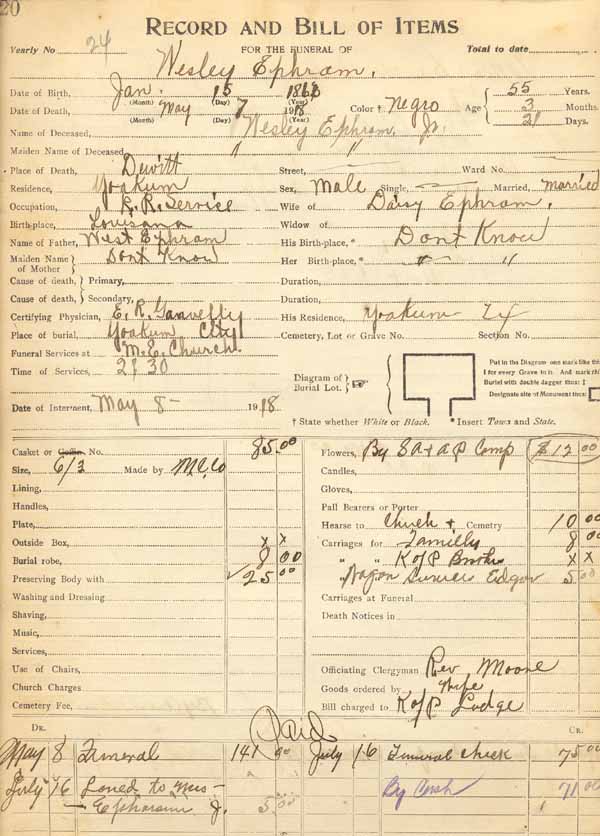 20
RECORD AND BILL OF ITEMS
Yearly No 24 FOR THE FUNERAL OF Total to date
Wesley Ephram.
Date of Birth, Jan. 15 186 55 Years.
(Month) (Day) (Year)
Date of Death, May 7 1918 Color † Negro Age 3 Months.
(Month) (Day) (Year)
21 Days.
Name of Deceased, Wesley Ephram, Jr.
Maiden Name of Deceased, " "
Place of Death, Dewitt Street, Ward No.
Residence, Yoakum Sex, Male Single, Married, married
Occupation, R. R. Service Wife of Daisy Ephram.
Birth-place, Louisana Widow of
Name of Father, West Ephram His Birth-place,* Dont Know
Maiden Name of Mother Dont Know Her Birth-place,* " "
Cause of death, Primary, Duration,
Cause of death, Secondary, Duration,
Certifying Physician, E. R. His Residence, Yoakum
Place of burial, Yoakum City Cemetery, Lot or Grave No. Section No.
Funeral Services at M. E. Church.
Time of Services, 2:30
Diagram of Burial Lot. ☞
Put in the Diagram one mark like this
I for every Grave in it. And mark
Burial with double dagger thus: ‡
Designate site of Monument thus: □
Date of Interment, May 8 - 1918
† State whether White or Black. * Insert Town and State.
Casket or Coffin No. 85.00 Flowers, By S A & A P Comp $12 00
Size, 6/3 Made by M C Co Candles,
Lining, Gloves,
Handles, Pall Bearers or Porter
Plate, Hearse to Church + Cemetry 10 00
Outside Box, x x Carriages for Familly 8 00
Burial robe, 8 00 " " K of P x x
Preserving Body with ✓25 00 Wagon Edgar 5 00
Washing and Dressing Carriages at Funeral
Shaving, Death Notices in
Music,
Services,
Use of Chairs, Officiating Clergyman Rev Moore
Church Charges Goods ordered by Wife
Cemetery Fee, Bill charged to K of P Lodge
DR. Paid CR.
May 8 Funeral 141 00 July 16 Funeral Check 75 00
July 16 Loned to Mrs - By Cash 71 00
- J. 5.00